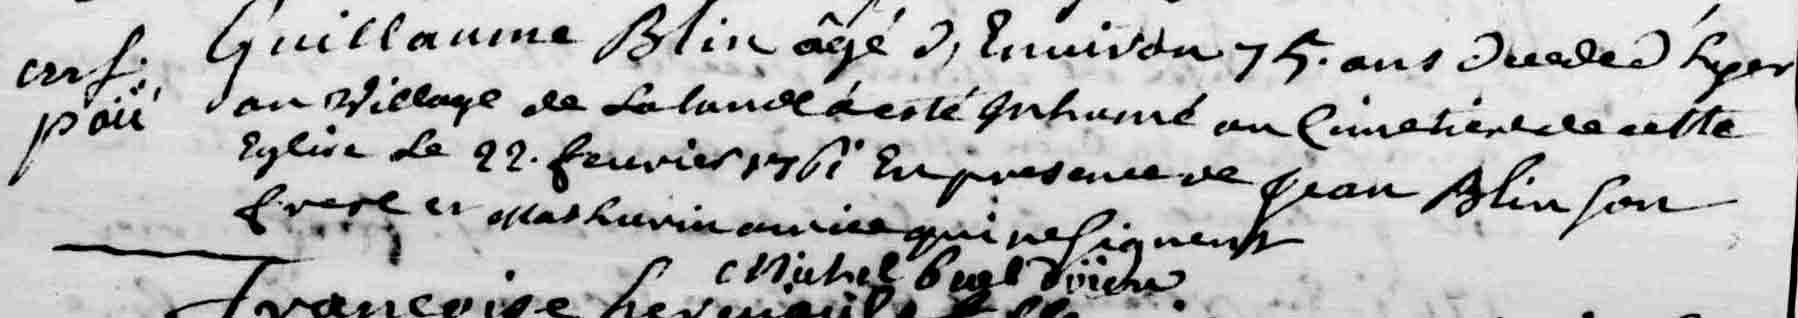 Guillaume Blin âgé d'Environ 75. ans deceded hyer
au Village de Lalande a esté Inhumé au Cimetiere de cette
Eglise Le 22. feuvrier 1761 En presence de Jean Blin son
frere et Mathurin amice qui ne signent
Michel
Françoise